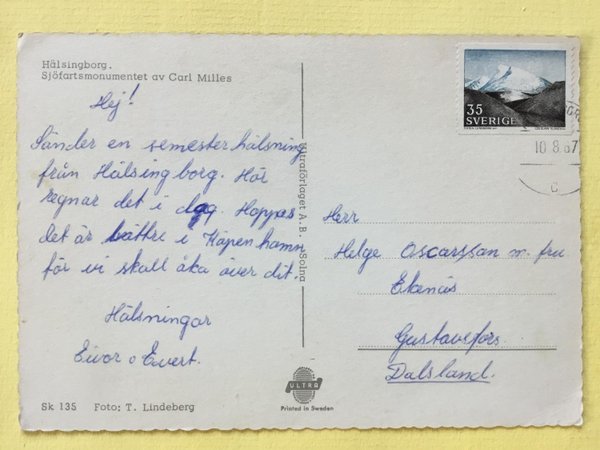 Hälsingborg.
Sjöfartsmonumentet av Carl Milles
Hej!
Sänder en semesterhälsning
från Hälsingborg. Här
regnar det i dag Hoppas
det är bättre i Köpenhamn
för vi skall åka över dit.
Hälsningar
Eivor o Evert.
Sk 135 Foto: T. Lindeberg
Ultraförlaget A.B. Solna
ULTRA
Printed in Sweden
35
SVERIGE
10.8.67
C
Herr
Helge Oscarsson m. fru
Ekenäs
Gustavsfors
Dalsland.